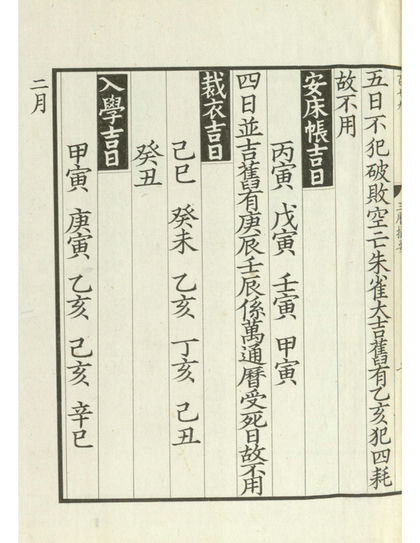 五日不犯破敗空亡朱雀大吉舊有乙亥犯四耗
故不用
安床帳吉日
丙寅 戊寅 壬寅 甲寅
四日並吉舊有庚辰壬辰係萬通曆受死日故不用
裁衣吉日
己巳 癸未 乙亥 丁亥 己丑
癸丑
入學吉日
甲寅 庚寅 乙亥 己亥 辛巳
二月